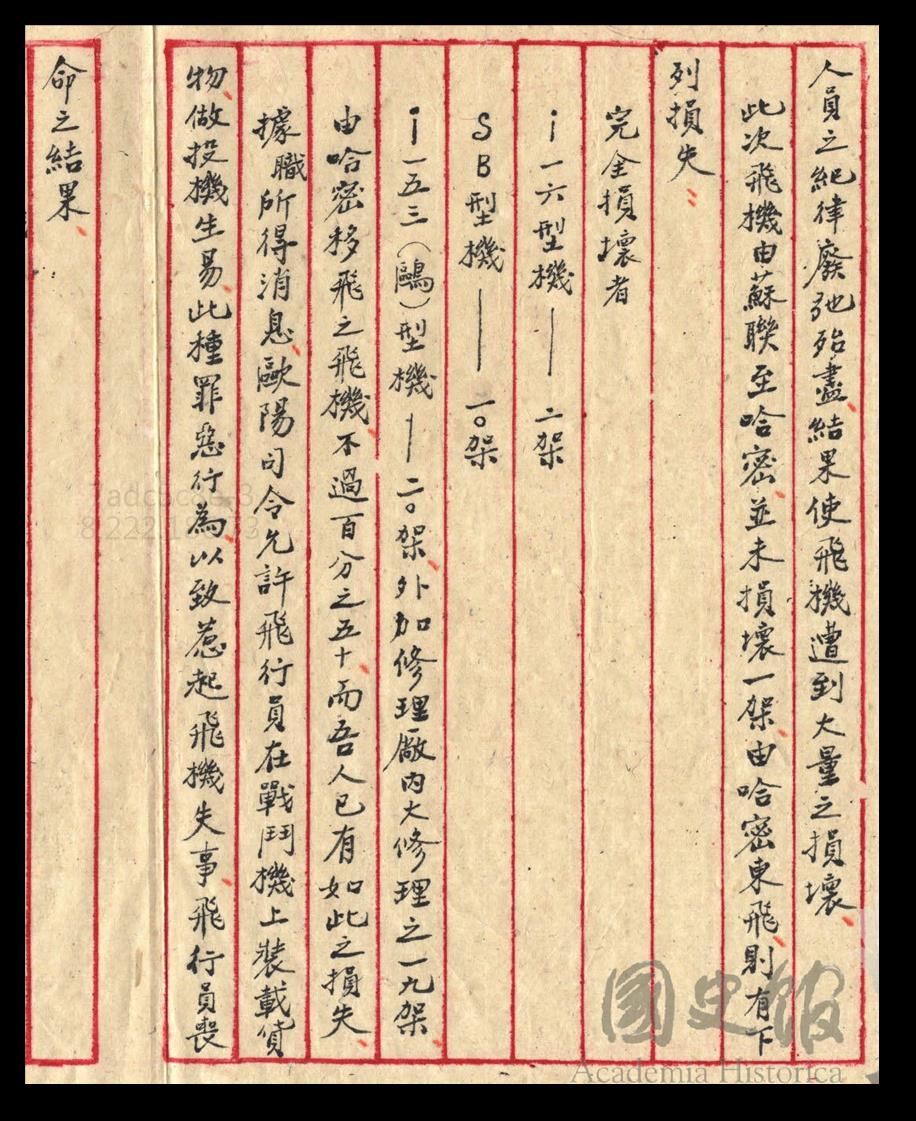 人員之紀律廢弛殆盡、結果使飛機遭到大量之損壞、
此次飛機由蘇聯至哈密、並未損壞一架、由哈密東飛、則有下
列損失：
完全損壞者
i一六型機——二架
SB型機——一○架
i一五三（鷗）型機—二○架、外加修理廠內大修理之一九架、
由哈密移飛之飛機、不過百分之五十、而吾人已有如此之損失、
據職所得消息、歐陽司令允許飛行員在戰鬥機上裝載貨
物、做投機生易、此種罪惡行為、以致惹起飛機失事、飛行員喪
命之結果、
國史館
Academia Historica